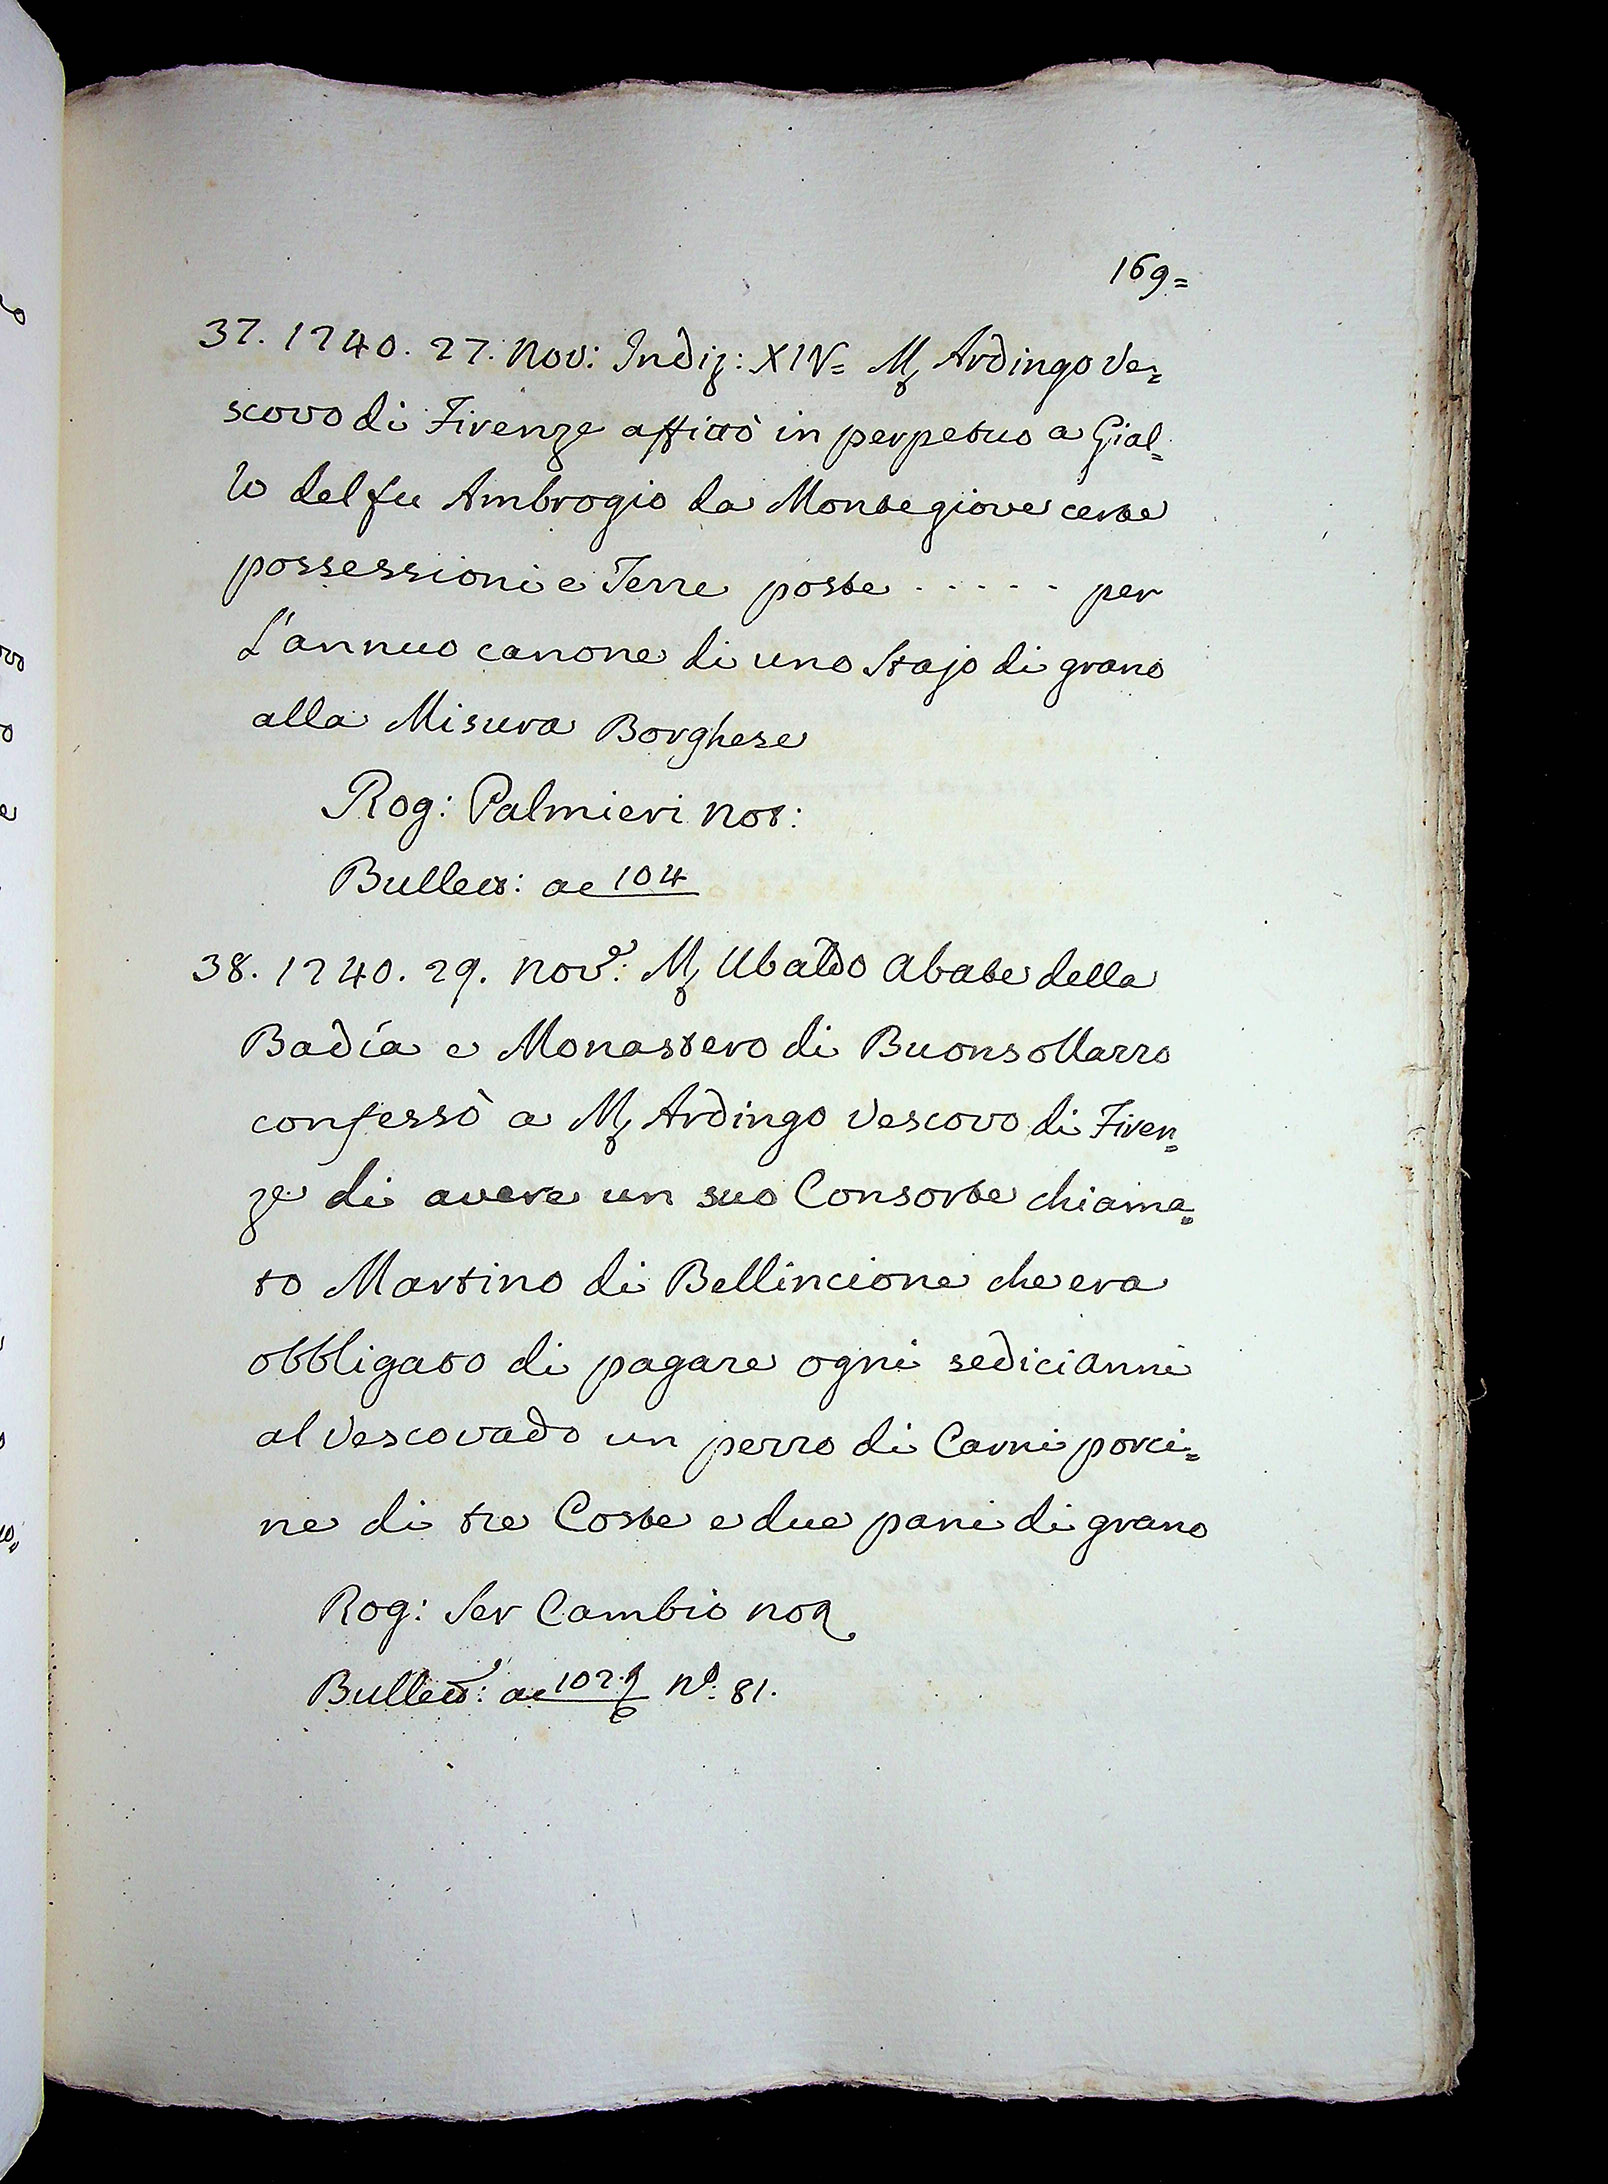 169=
37. 1240. 27. Nov: Indiz: XIV= M Ardingo Ve=
scovo di Firenze affittò in perpetuo a Gial=
lo del fu Ambrogio da Montegiove certe
possessioni e Terre poste ..... per
L'annuo canone di uno Stajo di grano
alla Misura Borghese
Rog: Palmieri not:
Bullett: ac 104
38. 1240. 29. Nov.e: M Ubaldo Abate della
Badía e Monastero di Buonsollazzo
confessò a M Ardingo Vescovo di Firen=
ze di avere un suo Consorte chiama=
to Martino di Bellincione che era
obbligato di pagare ogni sedici anni
al Vescovado un pezzo di Carni porci=
ne di tre Coste e due pani di grano
Rog: Ser Cambio not
Bullett: ac 102 No: 81.